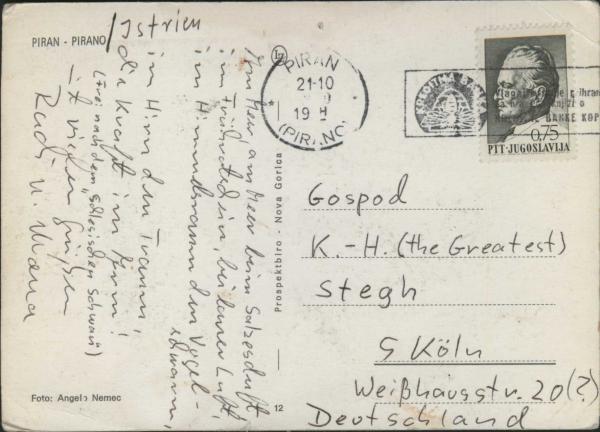 PIRAN - PIRANO
/Istrien
Am Meer am Meer beim Salzesduft
im Frührotschein, bei lauer Luft
im Himmelsraum den Vogel-
schwarm,
im Hirn den Traum,
die Kraft im Arm!
(frei nach dem "Schlesischen Schwan")
mit vielen Grüßen
Rudi u. Mana
Foto: Angelo Nemec
Prospektbiro - Nova Gorica
12
PIRAN
21-10
19
(PIRANO)
BANKE KOP
0,75
PTT-JUGOSLAVIJA
Gospod
K.-H. (the Greatest)
Stegh
5 Köln
Weißhausstr. 20(?)
Deutschland